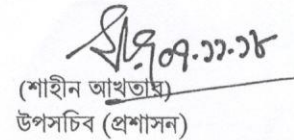 ০৭.১১.১৮
(শাহীন আখতার)
উপসচিব (প্রশাসন)